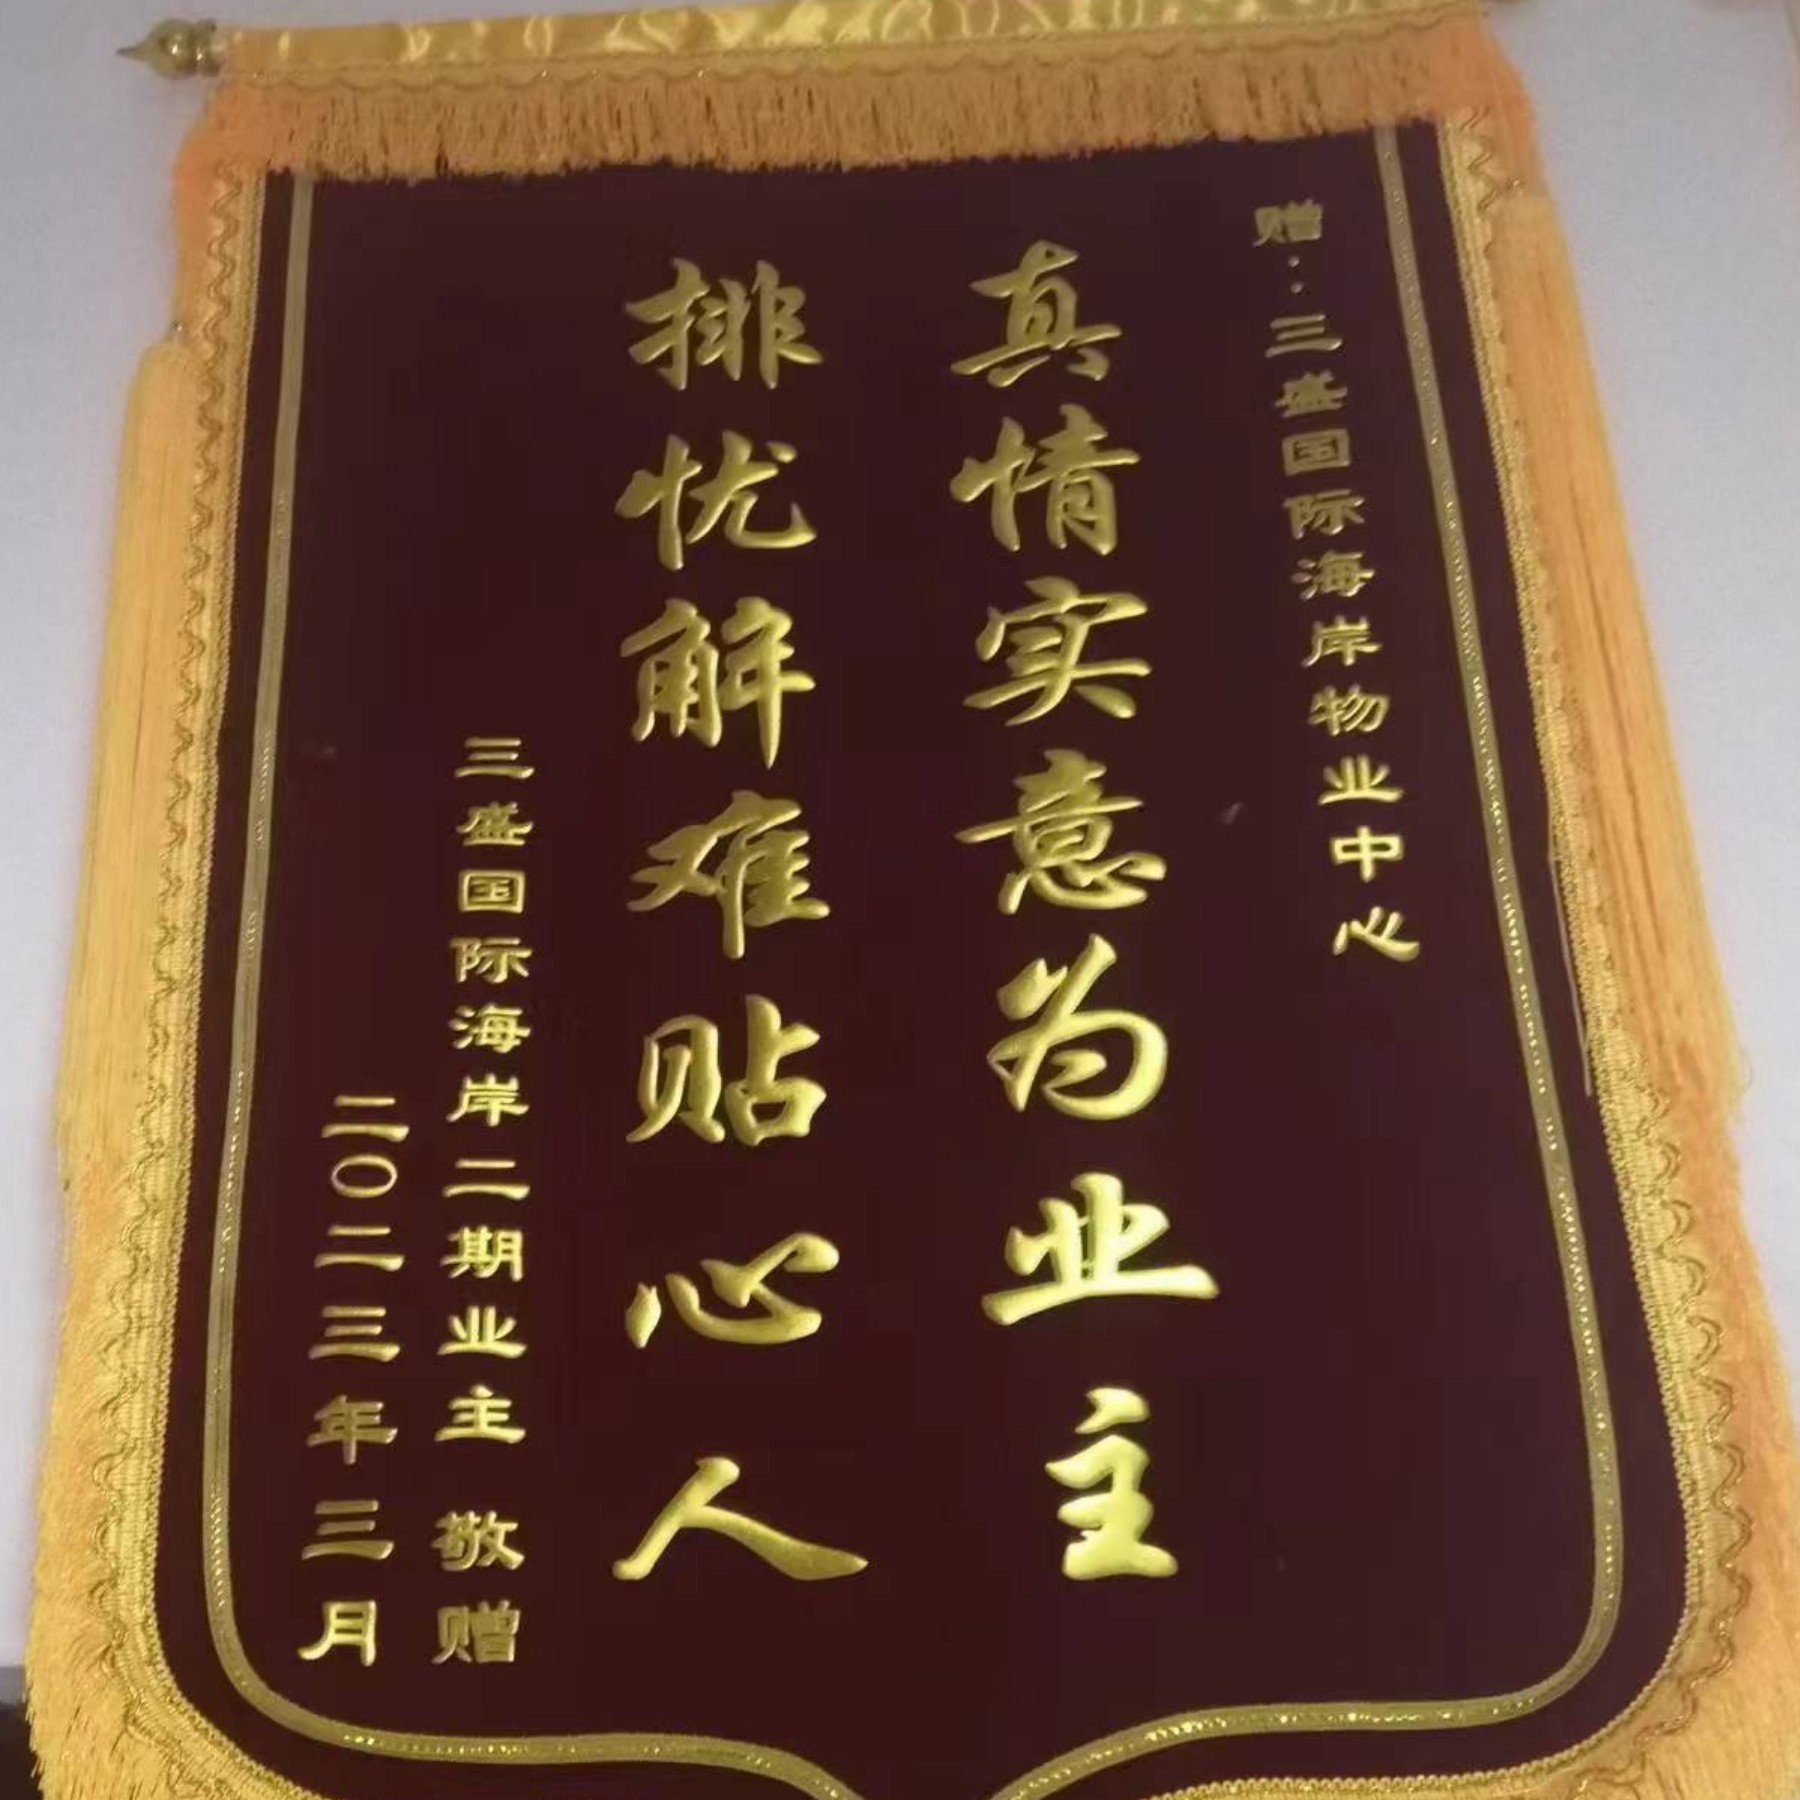 赠：三盛国际海岸物业中心
真情实意为业主
排忧解难贴心人
三盛国际海岸二期业主 敬赠
二〇二三年三月